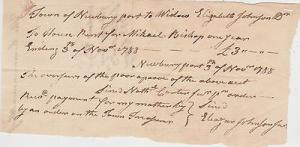 Town of Newbury port to Widow Elizabeth Johnson Dr
To House Rent for Mihael Bishop one year
Ending 3d of Novr 1788 £3 " — " —
Newbury port 3d Novr 1788
The overseers of the poor approve of the above acct
Sind Nathl Carter pr order
Recd payment for my mother by
an order on the Town Treasurer
Sind
Eleazer Johnson Jur